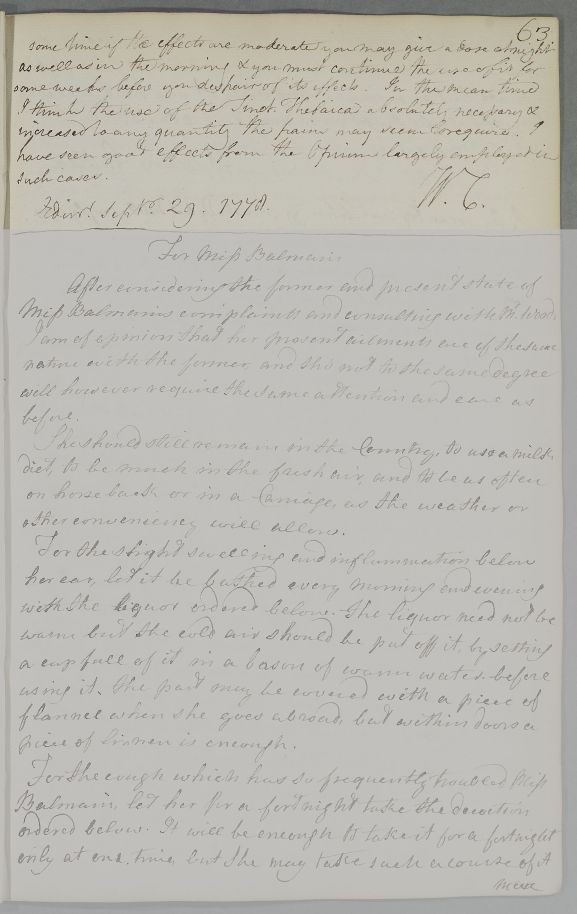 63
some time if the effects are moderate you may give a dose at night
as well as in the morning & you must continue the use of it for
some weeks before you despair of its effects. In the mean time
I think the use of the Tinct. Thebaica absolutely necessary &
increased to any quantity the pain may seem to require. I
have seen good effects from the Opium largely employed in
such cases.
W. C.
Edinr. Septr. 29. 1778.
For Miss Balmain
After considering the former and present state of
Miss Balmains complaints and consulting with Mr. Wood
I am of opinion that her present ailments are of the same
nature with the former, and tho' not to the same degree
will however require the same attention and care as
before.
She should still remain in the Country, to use a milk
diet, to be much in the fresh air, and to be as often
on horseback or in a Carriage, as the weather or
other conveniency will allow.
For the slight swelling and inflammation below
her ear, let it be bathed every morning and evening
with the liquor ordered below. The liquor need not be
warm but the cold air should be put off it, by setting
a cup full of it in a bason of warm water before
using it. The part may be covered with a piece of
flannel when she goes abroad, but within doors a
piece of linnen is enough.
For the cough which has so frequently troubled Miss
Balmain, let her for a fortnight take the decoction
ordered below. It will be enough to take it for a fortnight
only at one time, but she may take such a course of it